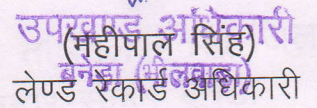 उपखण्ड अधिकारी
(महीपाल सिंह)
बनेड़ा (भीलवाड़ा)
लेण्ड रेकार्ड अधिकारी